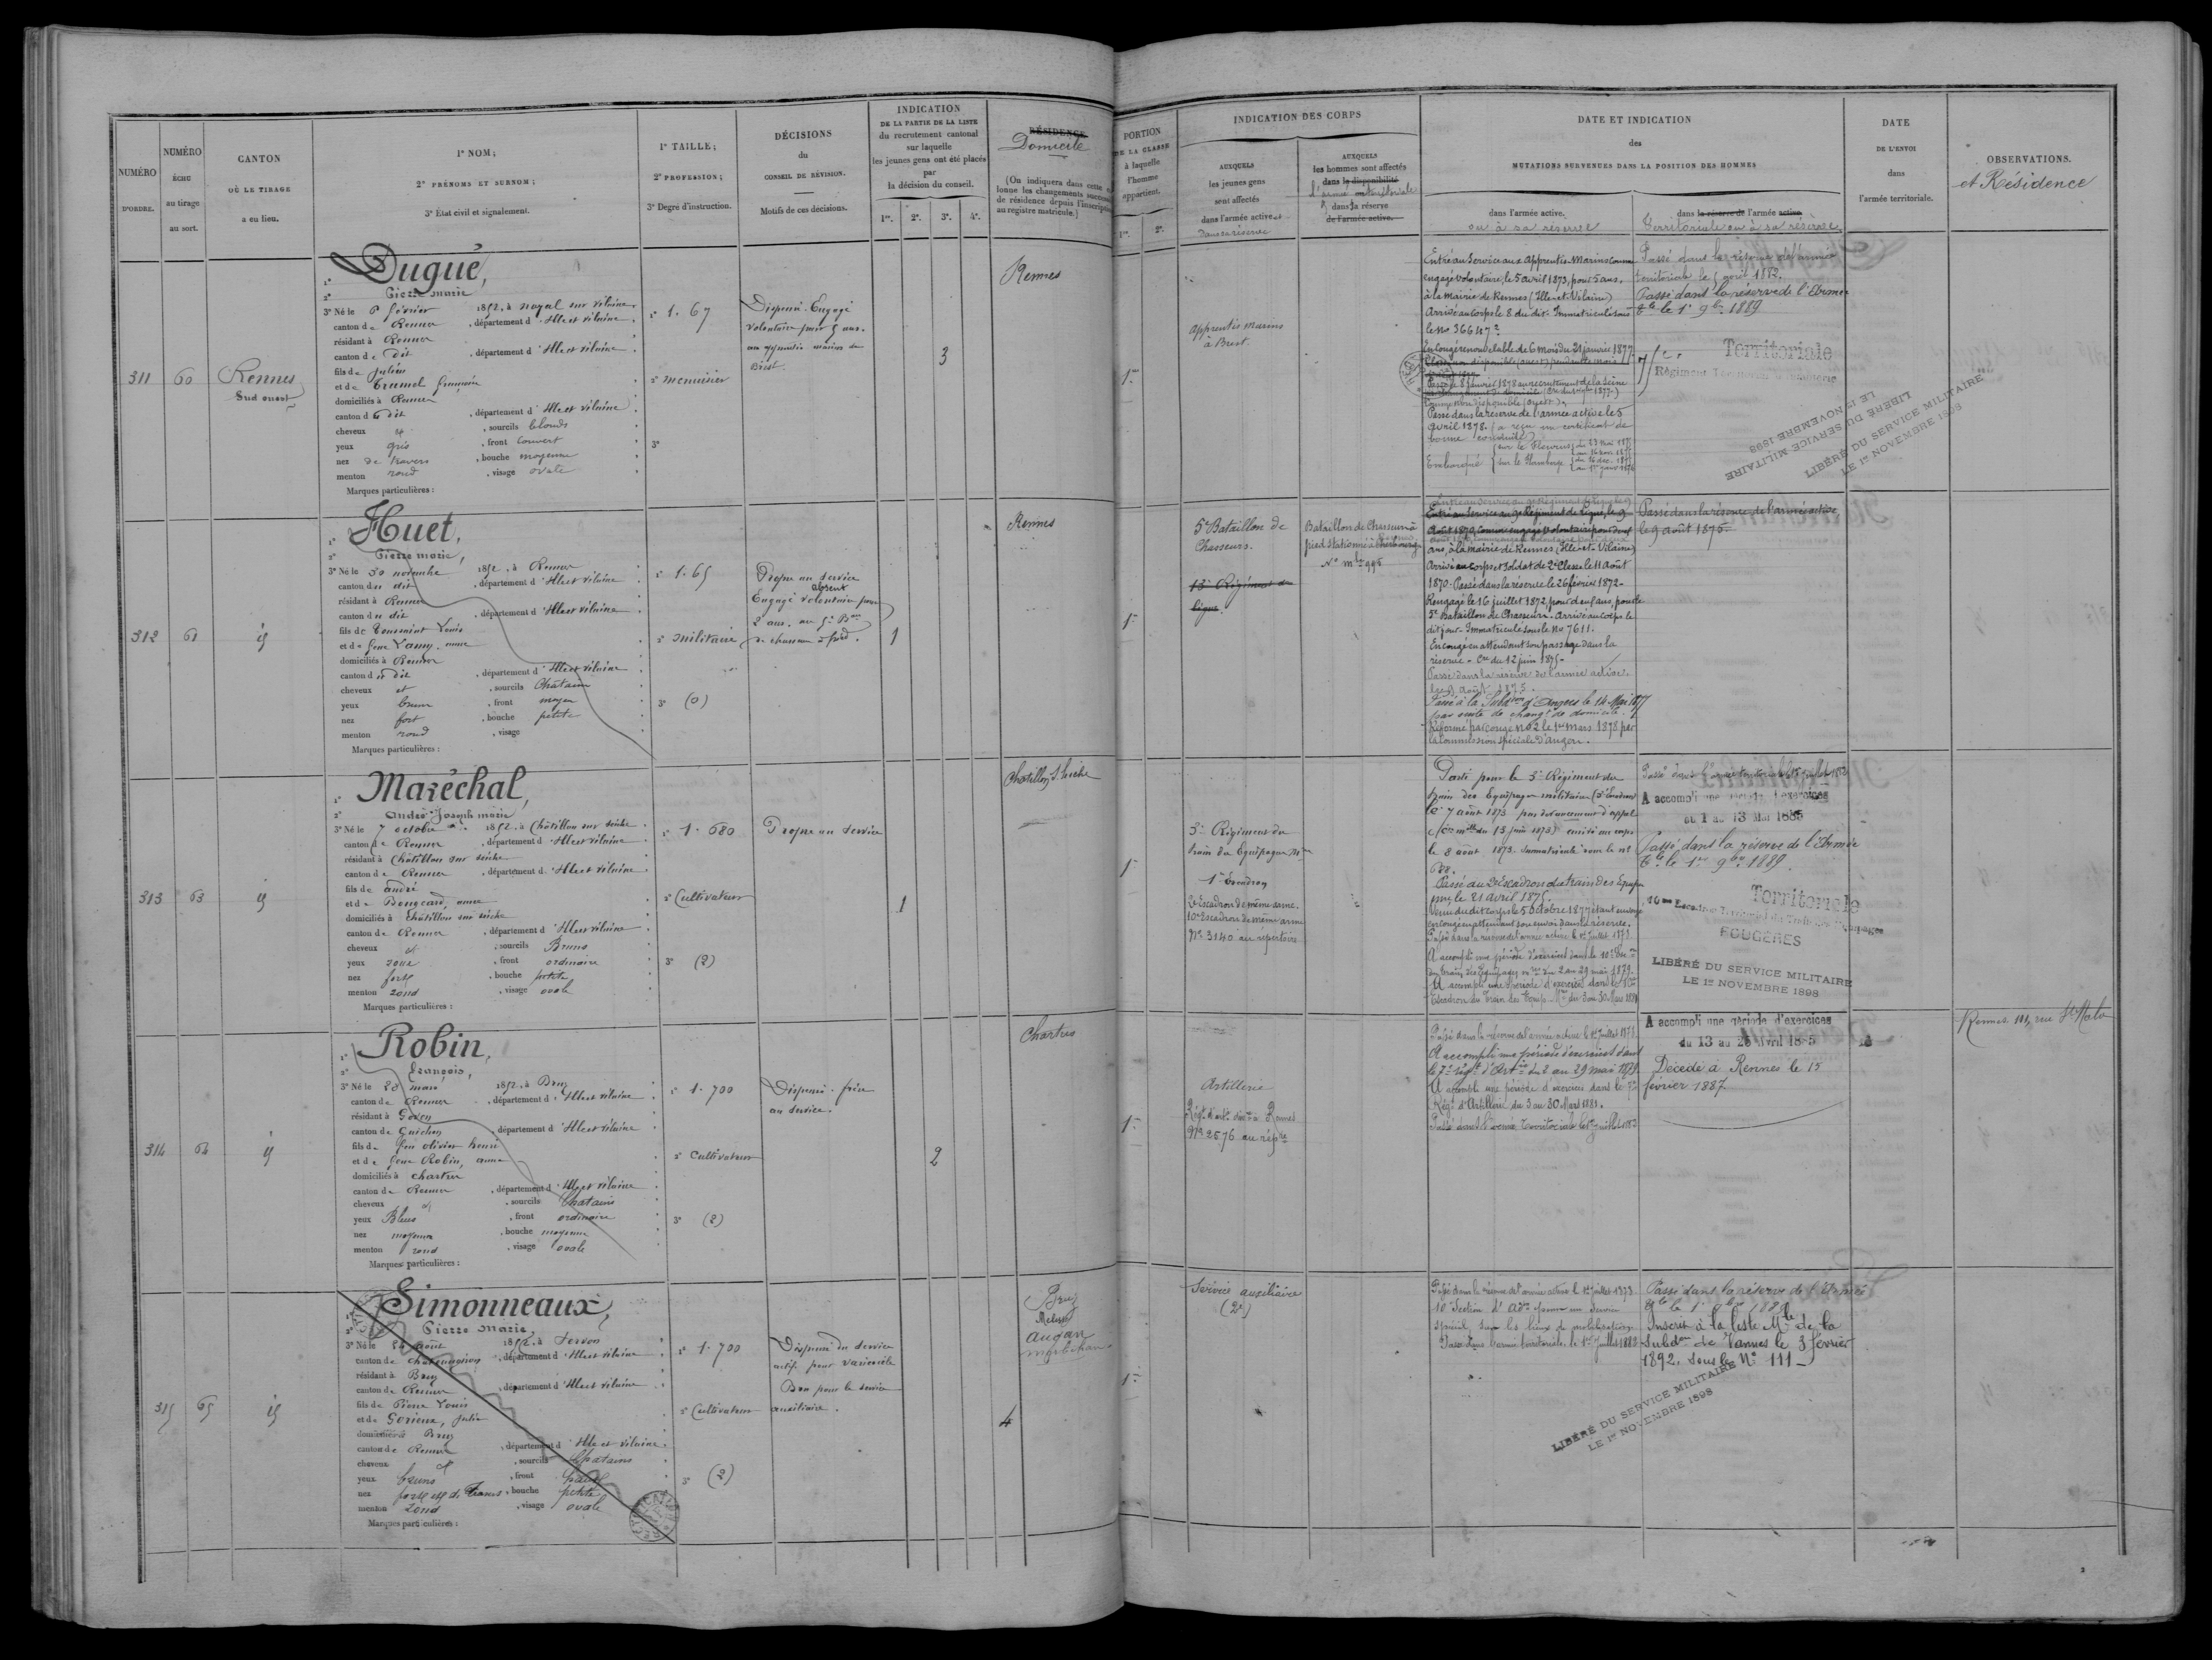 NUMÉRO
D'ORDRE.
NUMÉRO
ÉCHU
au tirage
au sort.
CANTON
OÙ LE TIRAGE
a eu lieu.
1° NOM;
2° PRÉNOMS ET SURNOM;
3° État civil et signalement.
1° TAILLE;
2° PROFESSION;
3° Degré d'instruction.
DÉCISIONS
du
CONSEIL DE RÉVISION.
Motifs de ces décisions.
INDICATION
DE LA PARTIE DE LA LISTE
du recrutement cantonal
sur laquelle
les jeunes gens ont été placés
par
la décision du conseil.
1re. 2e. 3e. 4e.
RÉSIDENCE
Domicile
(On indiquera dans cette
lonne les changements
de résidence depuis
au registre matricule.)
PORTION
DE LA CLASSE
à laquelle
l'homme
appartient.
1re. 2e.
INDICATION DES CORPS
AUXQUELS
les jeunes gens
sont affectés
dans l'armée active et
dans sa réserve
AUXQUELS
les hommes sont affectés
dans la disponibilité
l'armée territoriale
& dans sa réserve
de l'armée active.
DATE ET INDICATION
des
MUTATIONS SURVENUES DANS LA POSITION DES HOMMES
dans l'armée active.
ou à sa réserve
dans la réserve de l'armée active
territoriale ou à sa réserve
DATE
DE L'ENVOI
dans
l'armée territoriale.
OBSERVATIONS.
et Résidence
311
60
Rennes
Sud ouest
1° Dugué,
2° Pierre Marie
3° Né le 8 février 1852, à Noyal sur Vilaine
canton de Rennes, département d'Ille et Vilaine
résidant à Rennes
canton de dit, département d'Ille et Vilaine
fils de Julien
et de Tramel
domiciliés à Rennes
canton d dit, département d'Ille et Vilaine
cheveux et, sourcils blonds
yeux gris, front couvert
nez de travers, bouche moyenne
menton rond, visage ovale
Marques particulières:
1° 1.67
2° menuisier
3°
Dispensé. Engagé
volontaire pour 5 ans
aux apprentis marins de
Brest.
3
Rennes
1re
Apprentis marins
à Brest.
Entré au Service aux apprentis-Marins Comme
engagé volontaire, le 5 avril 1873, pour 5 ans,
à la mairie de Rennes (Ille-et-Vilaine)
Arrivé au Corps le 8 du dit. Immatriculé sous
le No 36647
En Congé renouvelable de 6 mois du 21 janvier 1877
Passé le 8 janvier 1878 au recrutement de la Seine
Passé dans la réserve de l'armée active le 5
avril 1878. a reçu un certificat de
bonne conduite
Embarqué
Passé dans la réserve de l'armée
territoriale le 5 avril 1882.
Passé dans la réserve de l'Armée
Tle le 1er 9bre 1889
Territoriale
Régiment Territorial d'Infanterie
LIBÉRÉ DU SERVICE MILITAIRE
LE 1er NOVEMBRE 1898
LIBÉRÉ DU SERVICE MILITAIRE
LE 1er NOVEMBRE 1898
312
61
id
1° Huet,
2° Pierre marie,
3° Né le 30 novembre 1852, à Rennes
canton du dit, département d'Ille et Vilaine
résidant à Rennes
canton du dit, département d'Ille et Vilaine
fils de Toussaint Louis
et de feue Lamy, anne
domiciliés à Rennes
canton du dit, département d'Ille et Vilaine
cheveux et, sourcils Châtains
yeux bruns, front moyen
nez fort, bouche petite
menton rond, visage
Marques particulières:
1° 1.65
2° militaire
3° (0)
Propre au service
absent
Engagé volontaire pour
2 ans, au 5e Bon
de chasseurs à pied.
1
Rennes
1re
5e Bataillon de
Chasseurs.
13e Régiment de
ligne.
Bataillon de Chasseurs à
pied stationné à Cherbourg
No mle 995
Entré au Service au 9e Régiment de Ligne, le 9
Août 1870, Comme engagé volontaire pour deux
ans, à la mairie de Rennes (Ille-et-Vilaine)
Arrivé au corps et soldat de 2e Classe le 11 Août
1870. Passé dans la réserve le 26 février 1872.
Rengagé le 16 juillet 1872, pour deux ans, pour le
5e Bataillon de Chasseurs. Arrivé au Corps le
dit jour. Immatriculé sous le No 7611.
En congé en attendant son passage dans la
réserve. Cre du 12 juin 1875.
Passé dans la réserve de l'armée active
le 9 août 1875.
Passé à la Subdon d'Angers le 14 Mai 1877
par suite de changt de domicile.
Réformé par congé No 2 le 1er mars 1878 par
la Commission spéciale d'Angers.
Passé dans la réserve de l'armée active,
le 9 août 1875.
313
63
id
1° Maréchal,
2° André Joseph marie
3° Né le 7 octobre 1852, à Châtillon sur seiche
canton de Rennes, département d'Ille et Vilaine
résidant à Châtillon sur seiche
canton de Rennes, département d'Ille et Vilaine
fils de André
et de Bougeard, anne
domiciliés à Châtillon sur seiche
canton de Rennes, département d'Ille et Vilaine
cheveux et, sourcils Bruns
yeux roux, front ordinaire
nez fort, bouche petite
menton rond, visage ovale
Marques particulières:
1° 1.680
2° Cultivateur
3° (2)
Propre au service
1
Chatillon S. Seiche
1re
3e Régiment du
train des Equipages Mres
1er Escadron
2e Escadron de même arme.
10e Escadron de même arme
No 3140 au répertoire
Parti pour le 3e Régiment du
train des Equipages militaires (3e Escadron)
le 7 août 1873 par devancement d'appel
arrivé au corps
le 8 août 1873. Immatriculé sous le no
688.
Passé au 2e Escadron du train des Equip
le 21 avril 1875.
Venu du dit corps le 5 octobre 1877 étant envoyé
en congé en attendant son envoi dans la réserve.
Passé dans la réserve de l'armée active le 1er Juillet 1878
A accompli une période d'exercices dans le 10e Escon
du train des Equipages mres du 2 au 29 mai 1879.
A accompli une période d'exercices dans le 10e
Escadron du Train des Equip. Mres du 3 au 30 Mars 1881
Passé dans l'armée territoriale le 1er juillet 1882
A accompli une période d'exercices
du 1 au 13 Mai 1885
Passé dans la réserve de l'Armée
Tle le 1er 9bre 1889.
Territoriale
10me Escadron Territorial du Train des Equipages
FOUGÈRES
LIBÉRÉ DU SERVICE MILITAIRE
LE 1er NOVEMBRE 1898
314
64
id
1° Robin,
2° François,
3° Né le 28 mars 1852, à Bruz
canton de Rennes, département d'Ille et Vilaine
résidant à Goven
canton de Guichen, département d'Ille et Vilaine
fils de feu olivier henri
et de feue Robin, anne
domiciliés à chartres
canton de Rennes, département d'Ille et Vilaine
cheveux et, sourcils Châtains
yeux Bleus, front ordinaire
nez moyen, bouche moyenne
menton rond, visage ovale
Marques particulières:
1° 1.700
2° Cultivateur
3° (2)
Dispensé. frère
au service.
2
Chartres
1re
Artillerie
Régt d'artie divre à Rennes
No 2576 au répre
Passé dans la réserve de l'armée active le 1er Juillet 1878
A accompli une période d'exercices dans
le 7e régt d'Artie du 2 au 29 mai 1879
A accompli une période d'exercices dans le 7e
Régt d'Artillerie du 3 au 30 Mars 1881.
Passé dans l'armée territoriale le 1er juillet 1882
A accompli une période d'exercices
du 13 au 25 Avril 1885
Décédé à Rennes le 15
février 1887
Rennes 111, rue St Malo
315
65
id
1° Simonneaux,
2° Pierre Marie,
3° Né le 24 août 1852, à Servon
canton de chateaugiron, département d'Ille et Vilaine
résidant à Bruz
canton de Rennes, département d'Ille et Vilaine
fils de Pierre Louis
et de Gorieux, Julie
domiciliés à Bruz
canton de Rennes, département d'Ille et Vilaine
cheveux et, sourcils Châtains
yeux bruns, front haut
nez fort et de travers, bouche petite
menton rond, visage ovale
Marques particulières:
1° 1.700
2° Cultivateur
3° (2)
Dispensé du service
actif pour varicocèle
Bon pour le service
auxiliaire.
4
Bruz
Augan
morbihan
1re
Service auxiliaire
(2e)
Passé dans la réserve de l'armée active le 1er juillet 1878
10e Section d'Admon pour un service
spécial, sur les lieux de mobilisation
Passé dans l'armée territoriale, le 1er Juillet 1882
Passé dans la réserve de l'Armée
Tle le 1er 9bre 1889
Inscrit à la liste Mle de la
Subdon de Vannes le 3 février
1892, sous le No 111
LIBÉRÉ DU SERVICE MILITAIRE
LE 1er NOVEMBRE 1898